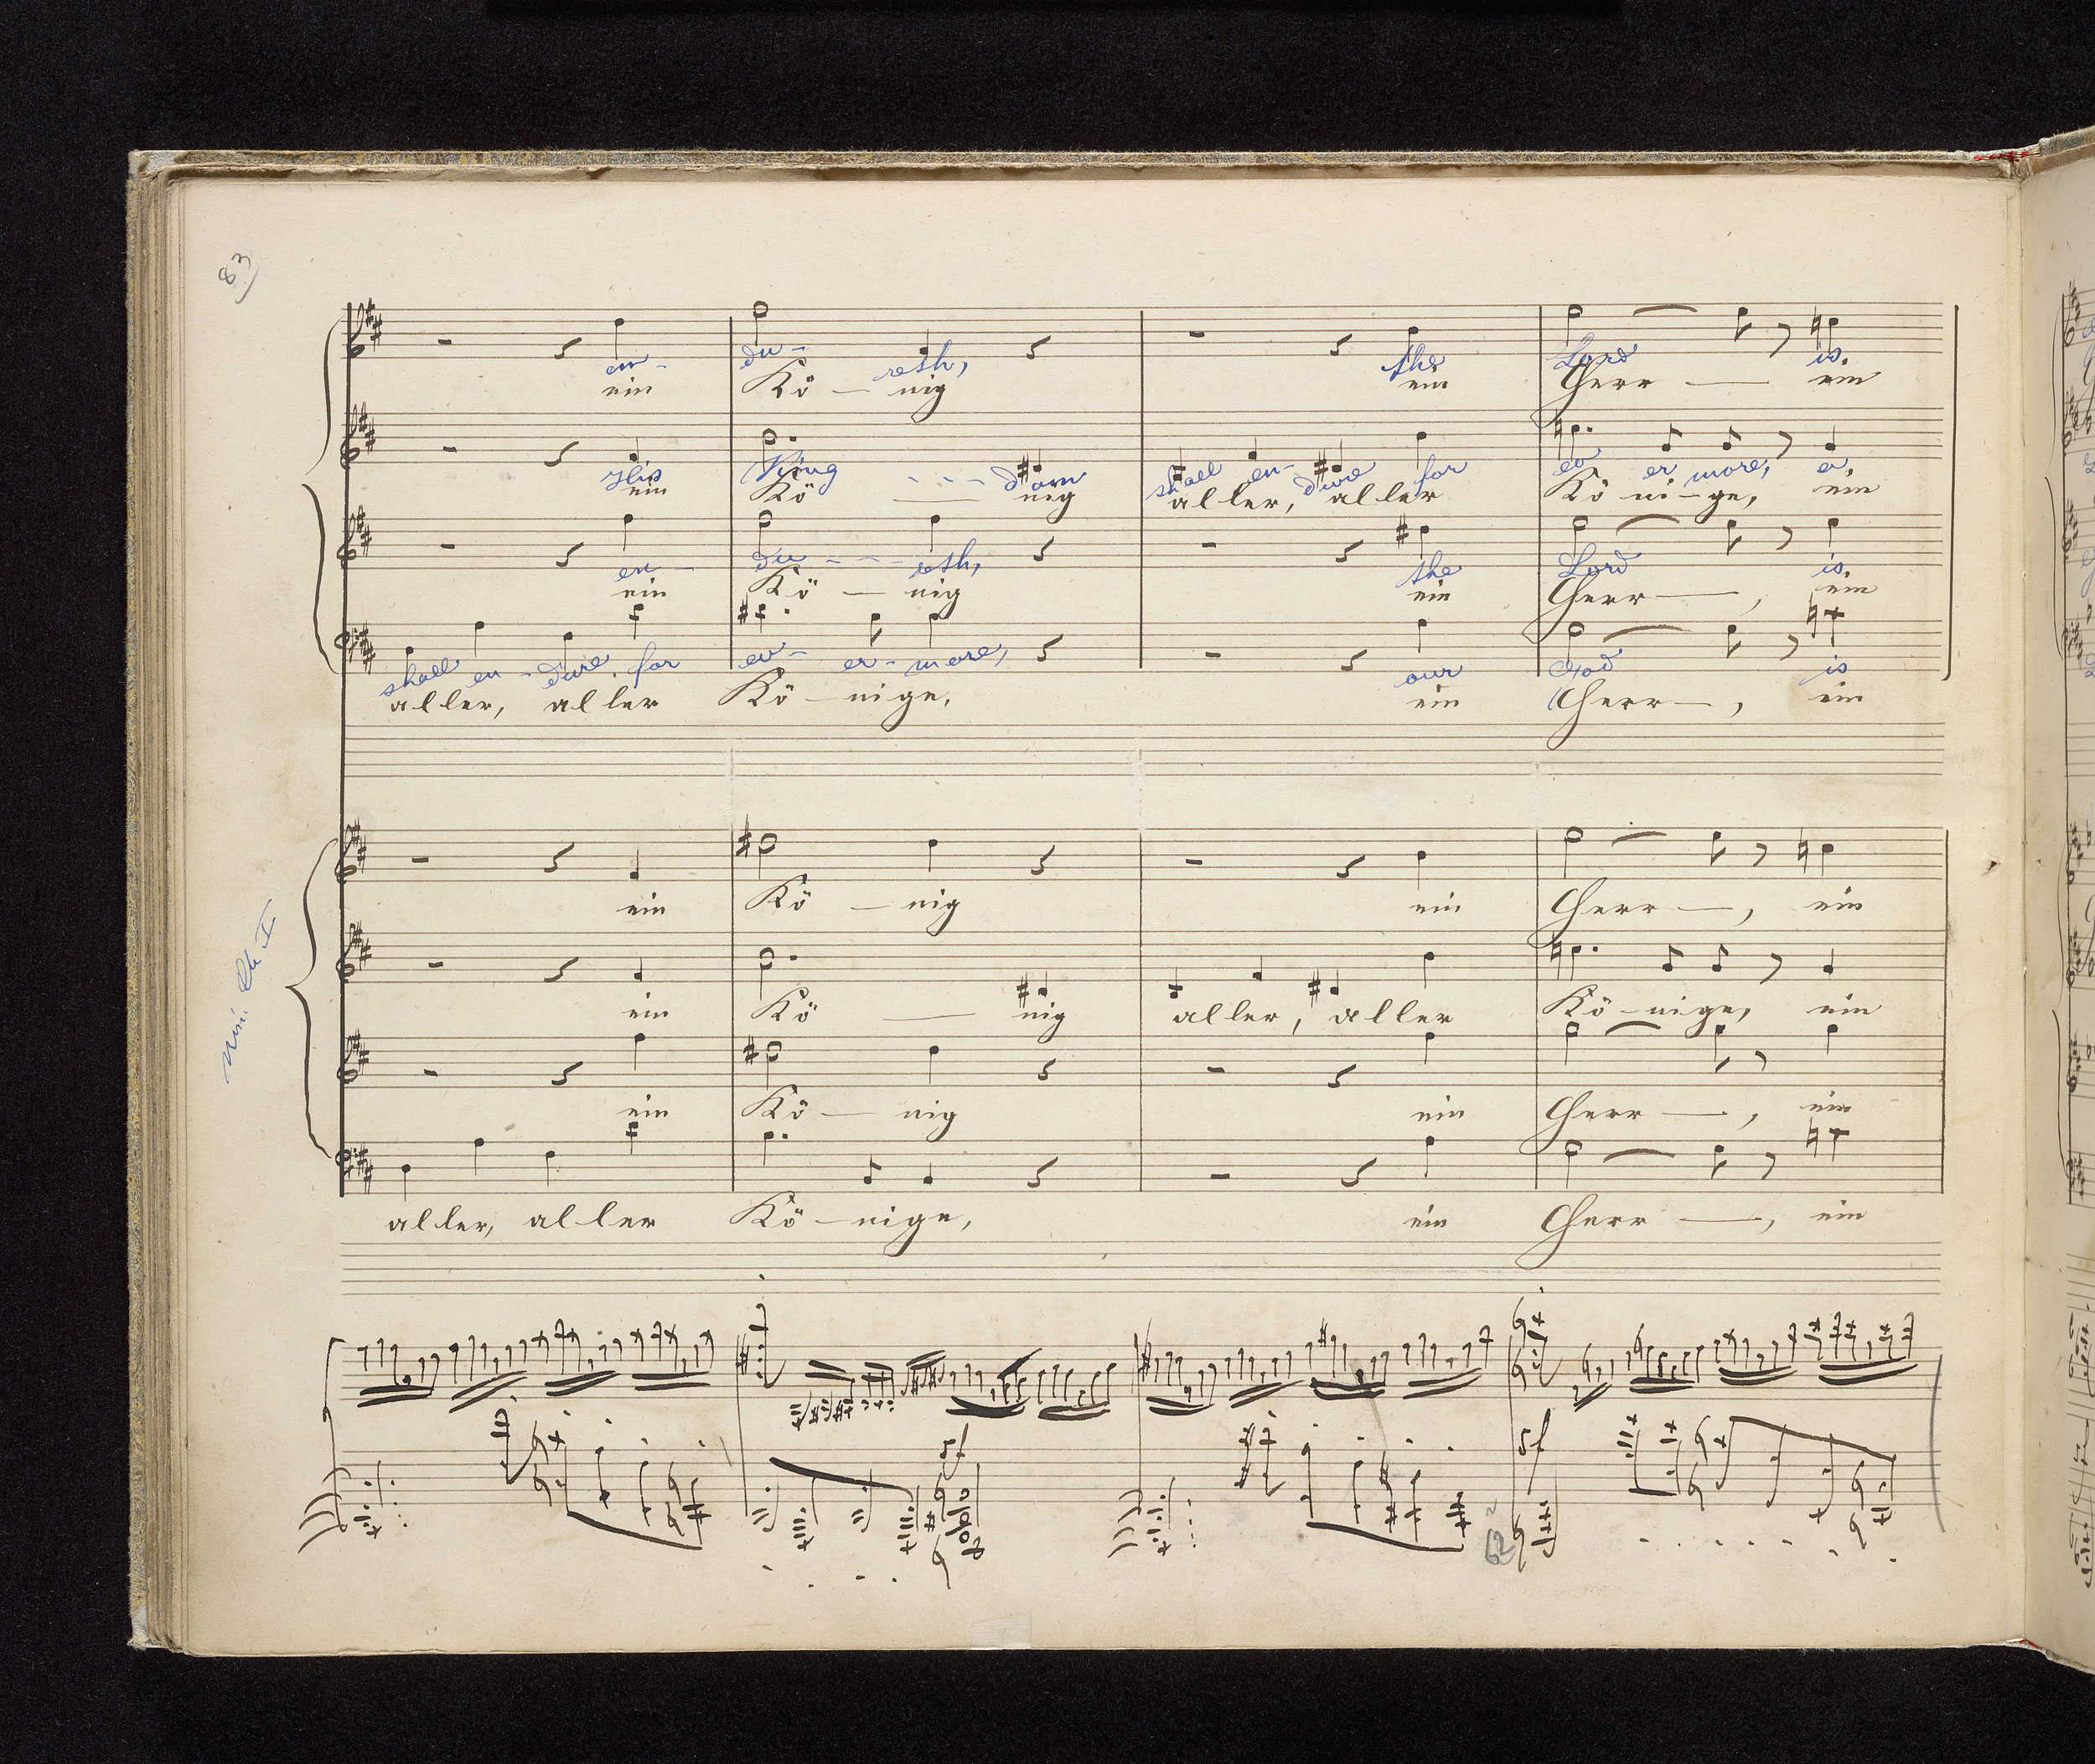 83)
en- du- reth, the Lord is.
ein Kö — nig ein Herr — ein
His King - - - dom shall en- dure for ev er more, a.
ein Kö — nig aller, aller Kö-ni-ge, ein
en- du - - - reth, the Lord is.
ein Kö — nig ein Herr —, ein
shall en - dure for ev- er- more, our God is
aller, aller Kö-nige, ein Herr —, ein
ein Kö — nig ein Herr —, ein
ein Kö — nig aller, aller Kö-nige, ein
ein Kö — nig ein Herr —, ein
aller, aller Kö-nige, ein Herr —, ein
sf sf